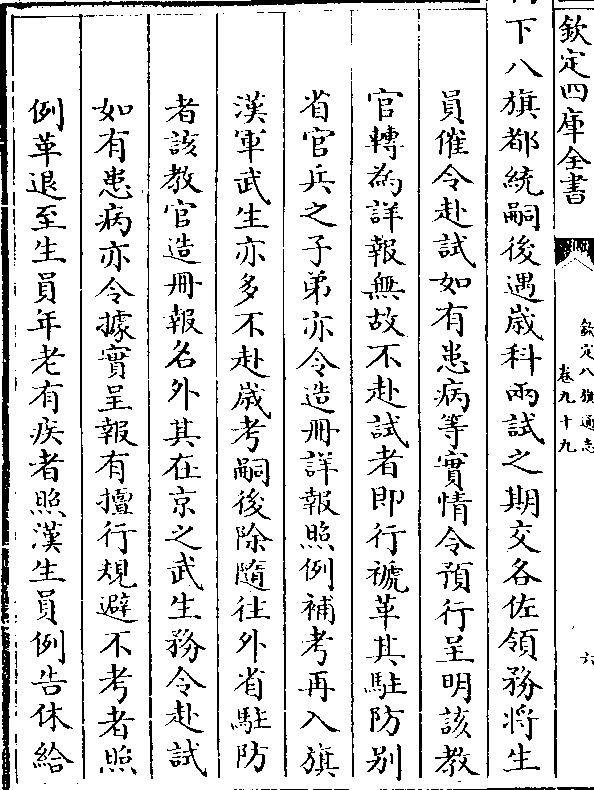 欽定四庫全書
欽定八旗通志
卷九十九
六
下八旗都統嗣後遇歲科兩試之期交各佐領務將生
員催令赴試如有患病等實情令預行呈明該教
官轉為詳報無故不赴試者即行褫革其駐防别
省官兵之子弟亦令造冊詳報照例補考再入旗
漢軍武生亦多不赴歲考嗣後除隨往外省駐防
者該教官造冊報名外其在京之武生務令赴試
如有患病亦令據實呈報有擅行規避不考者照
例革退至生員年老有疾者照漢生員例告休給